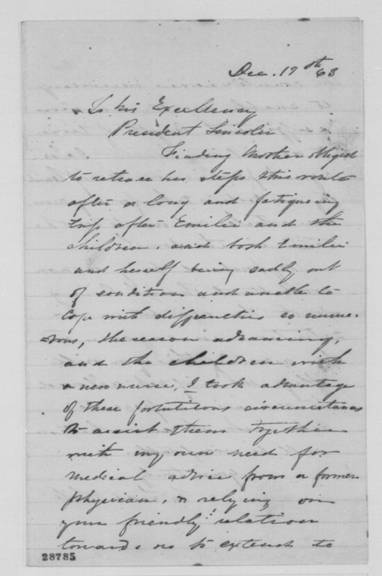 Dec. 19th 63
To his Excellency
President Lincoln
Finding Mother obliged
to retrace her steps this route
after a long and fatiguing
trip after Emilie and the
children, and both Emilie
and herself being sadly out
of condition and unable to
cope with difficulties so nume-
rous, the season advancing,
and the children with
a new nurse, I took advantage
of these fortuitous circumstances
to assist them together
with my own need for
medical advice from a former
physician, & relying on
your friendly relation
towards us to extend to
28785